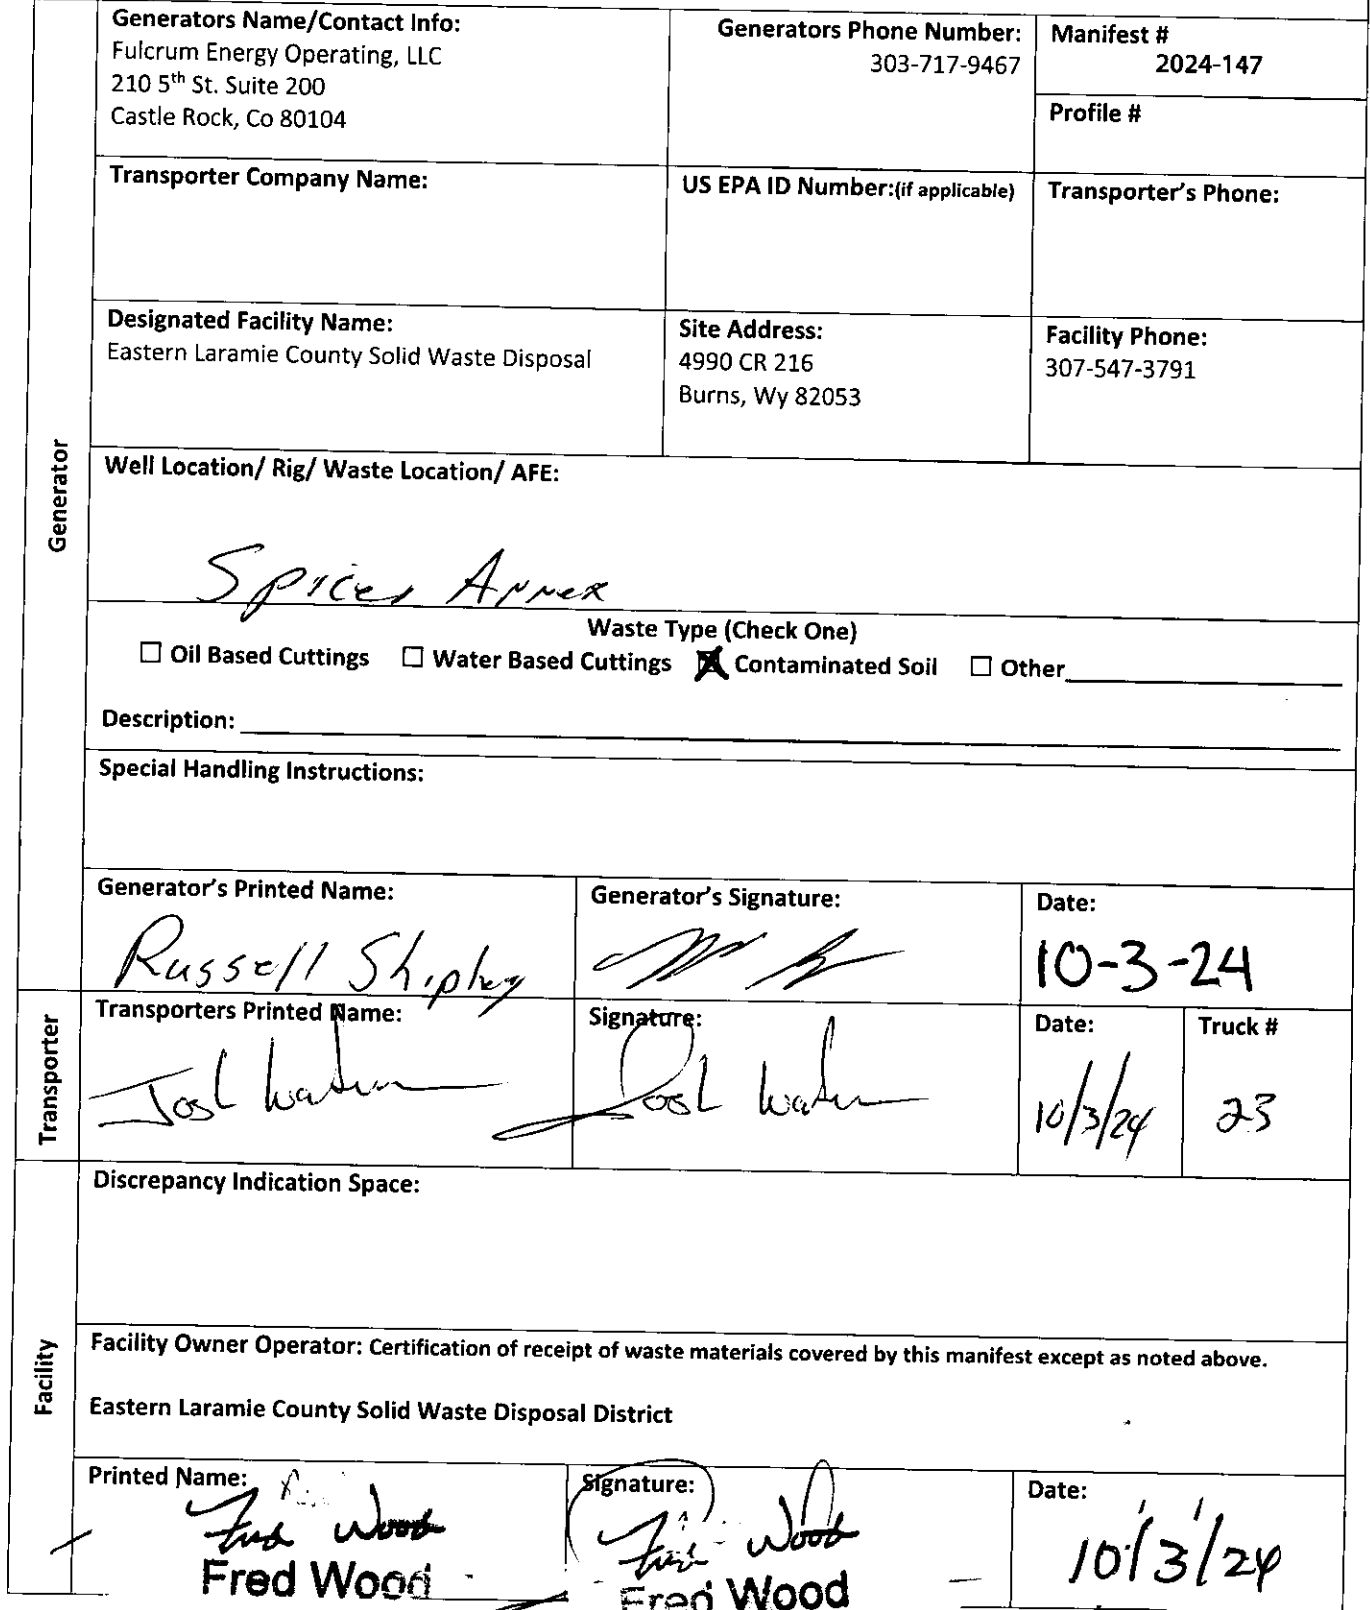 Generators Name/Contact Info:
Fulcrum Energy Operating, LLC
210 5th St. Suite 200
Castle Rock, Co 80104
Generators Phone Number:
303-717-9467
Manifest #
2024-147
Profile #
Transporter Company Name:
US EPA ID Number:(if applicable)
Transporter's Phone:
Designated Facility Name:
Eastern Laramie County Solid Waste Disposal
Site Address:
4990 CR 216
Burns, Wy 82053
Facility Phone:
307-547-3791
Generator
Well Location/ Rig/ Waste Location/ AFE:
Spicer Annex
Waste Type (Check One)
☐ Oil Based Cuttings ☐ Water Based Cuttings ☒ Contaminated Soil ☐ Other
Description:
Special Handling Instructions:
Generator's Printed Name:
Russell Shipley
Generator's Signature:
Date:
10-3-24
Transporter
Transporters Printed Name:
Josh
Signature:
Josh
Date:
10/3/24
Truck #
23
Facility
Discrepancy Indication Space:
Facility Owner Operator: Certification of receipt of waste materials covered by this manifest except as noted above.
Eastern Laramie County Solid Waste Disposal District
Printed Name:
Fred Wood
Fred Wood
Signature:
Fred Wood
Fred Wood
Date:
10/3/24